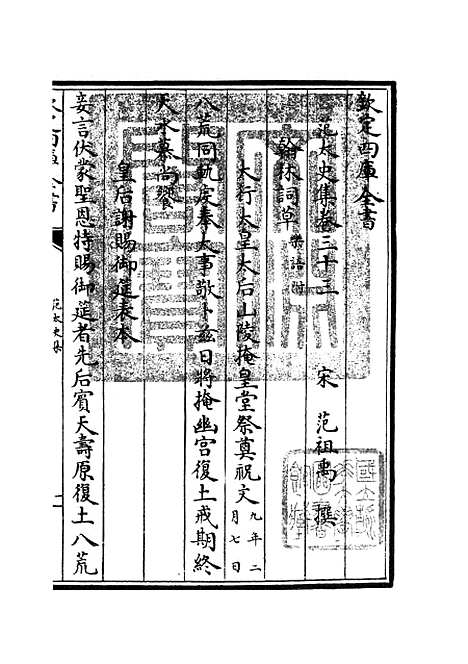 欽定四庫全書
范太史集卷三十三　宋　范祖禹　撰
翰林詞草樂語附
大行太皇太后山陵掩皇堂祭奠祝文九年二月七日
八荒同軌爰奉大事敬卜茲日將掩幽宮復土戒期終
天永慕尚饗
皇后謝賜御筵表本
妾言伏蒙聖恩特賜御筵者先后賓天壽原復土八荒
范太史集